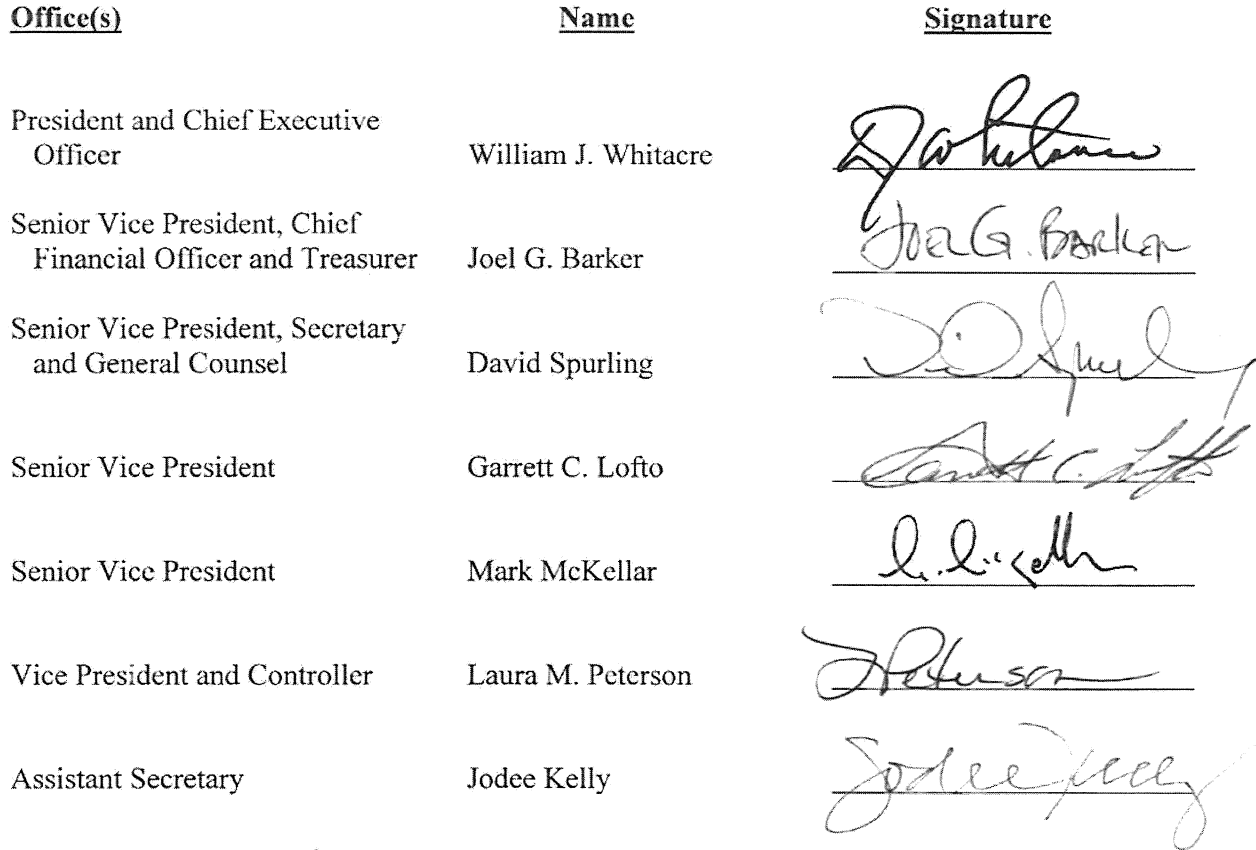 Office(s) Name Signature
President and Chief Executive
Officer William J. Whitacre
Senior Vice President, Chief
Financial Officer and Treasurer Joel G. Barker Joel G. Barker
Senior Vice President, Secretary
and General Counsel David Spurling
Senior Vice President Garrett C. Lofto Garrett C. Lofto
Senior Vice President Mark McKellar
Vice President and Controller Laura M. Peterson LPeterson
Assistant Secretary Jodee Kelly Jodee Kelly